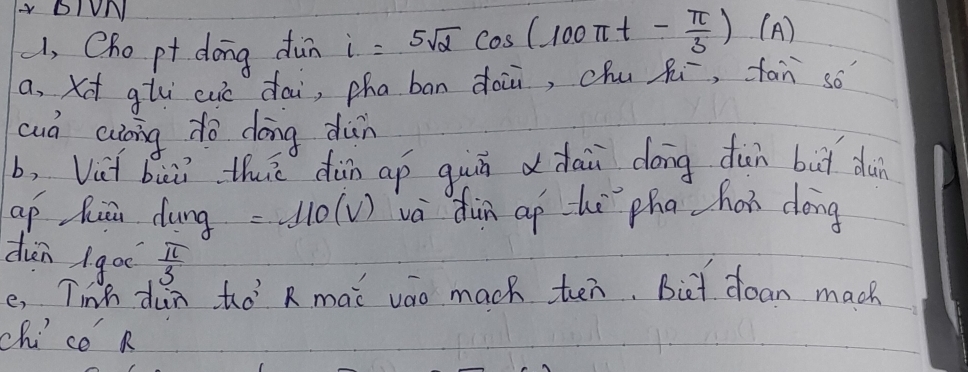 BTVN
1, Cho pt dòng điện i = 5√2 cos (100πt - π/3) (A)
a, Xđ gtrị cực đại, pha ban đầu, chu kì, tần số
của cường độ dòng điện
b, Viết biểu thức điện áp giữa 2 đầu dòng điện biết điện
áp hiệu dụng = 110(V) và điện áp trễ pha hơn dòng
điện 1 góc π/3
c, Tính điện trở R mắc vào mạch trên. Biết đoạn mạch
chỉ có R